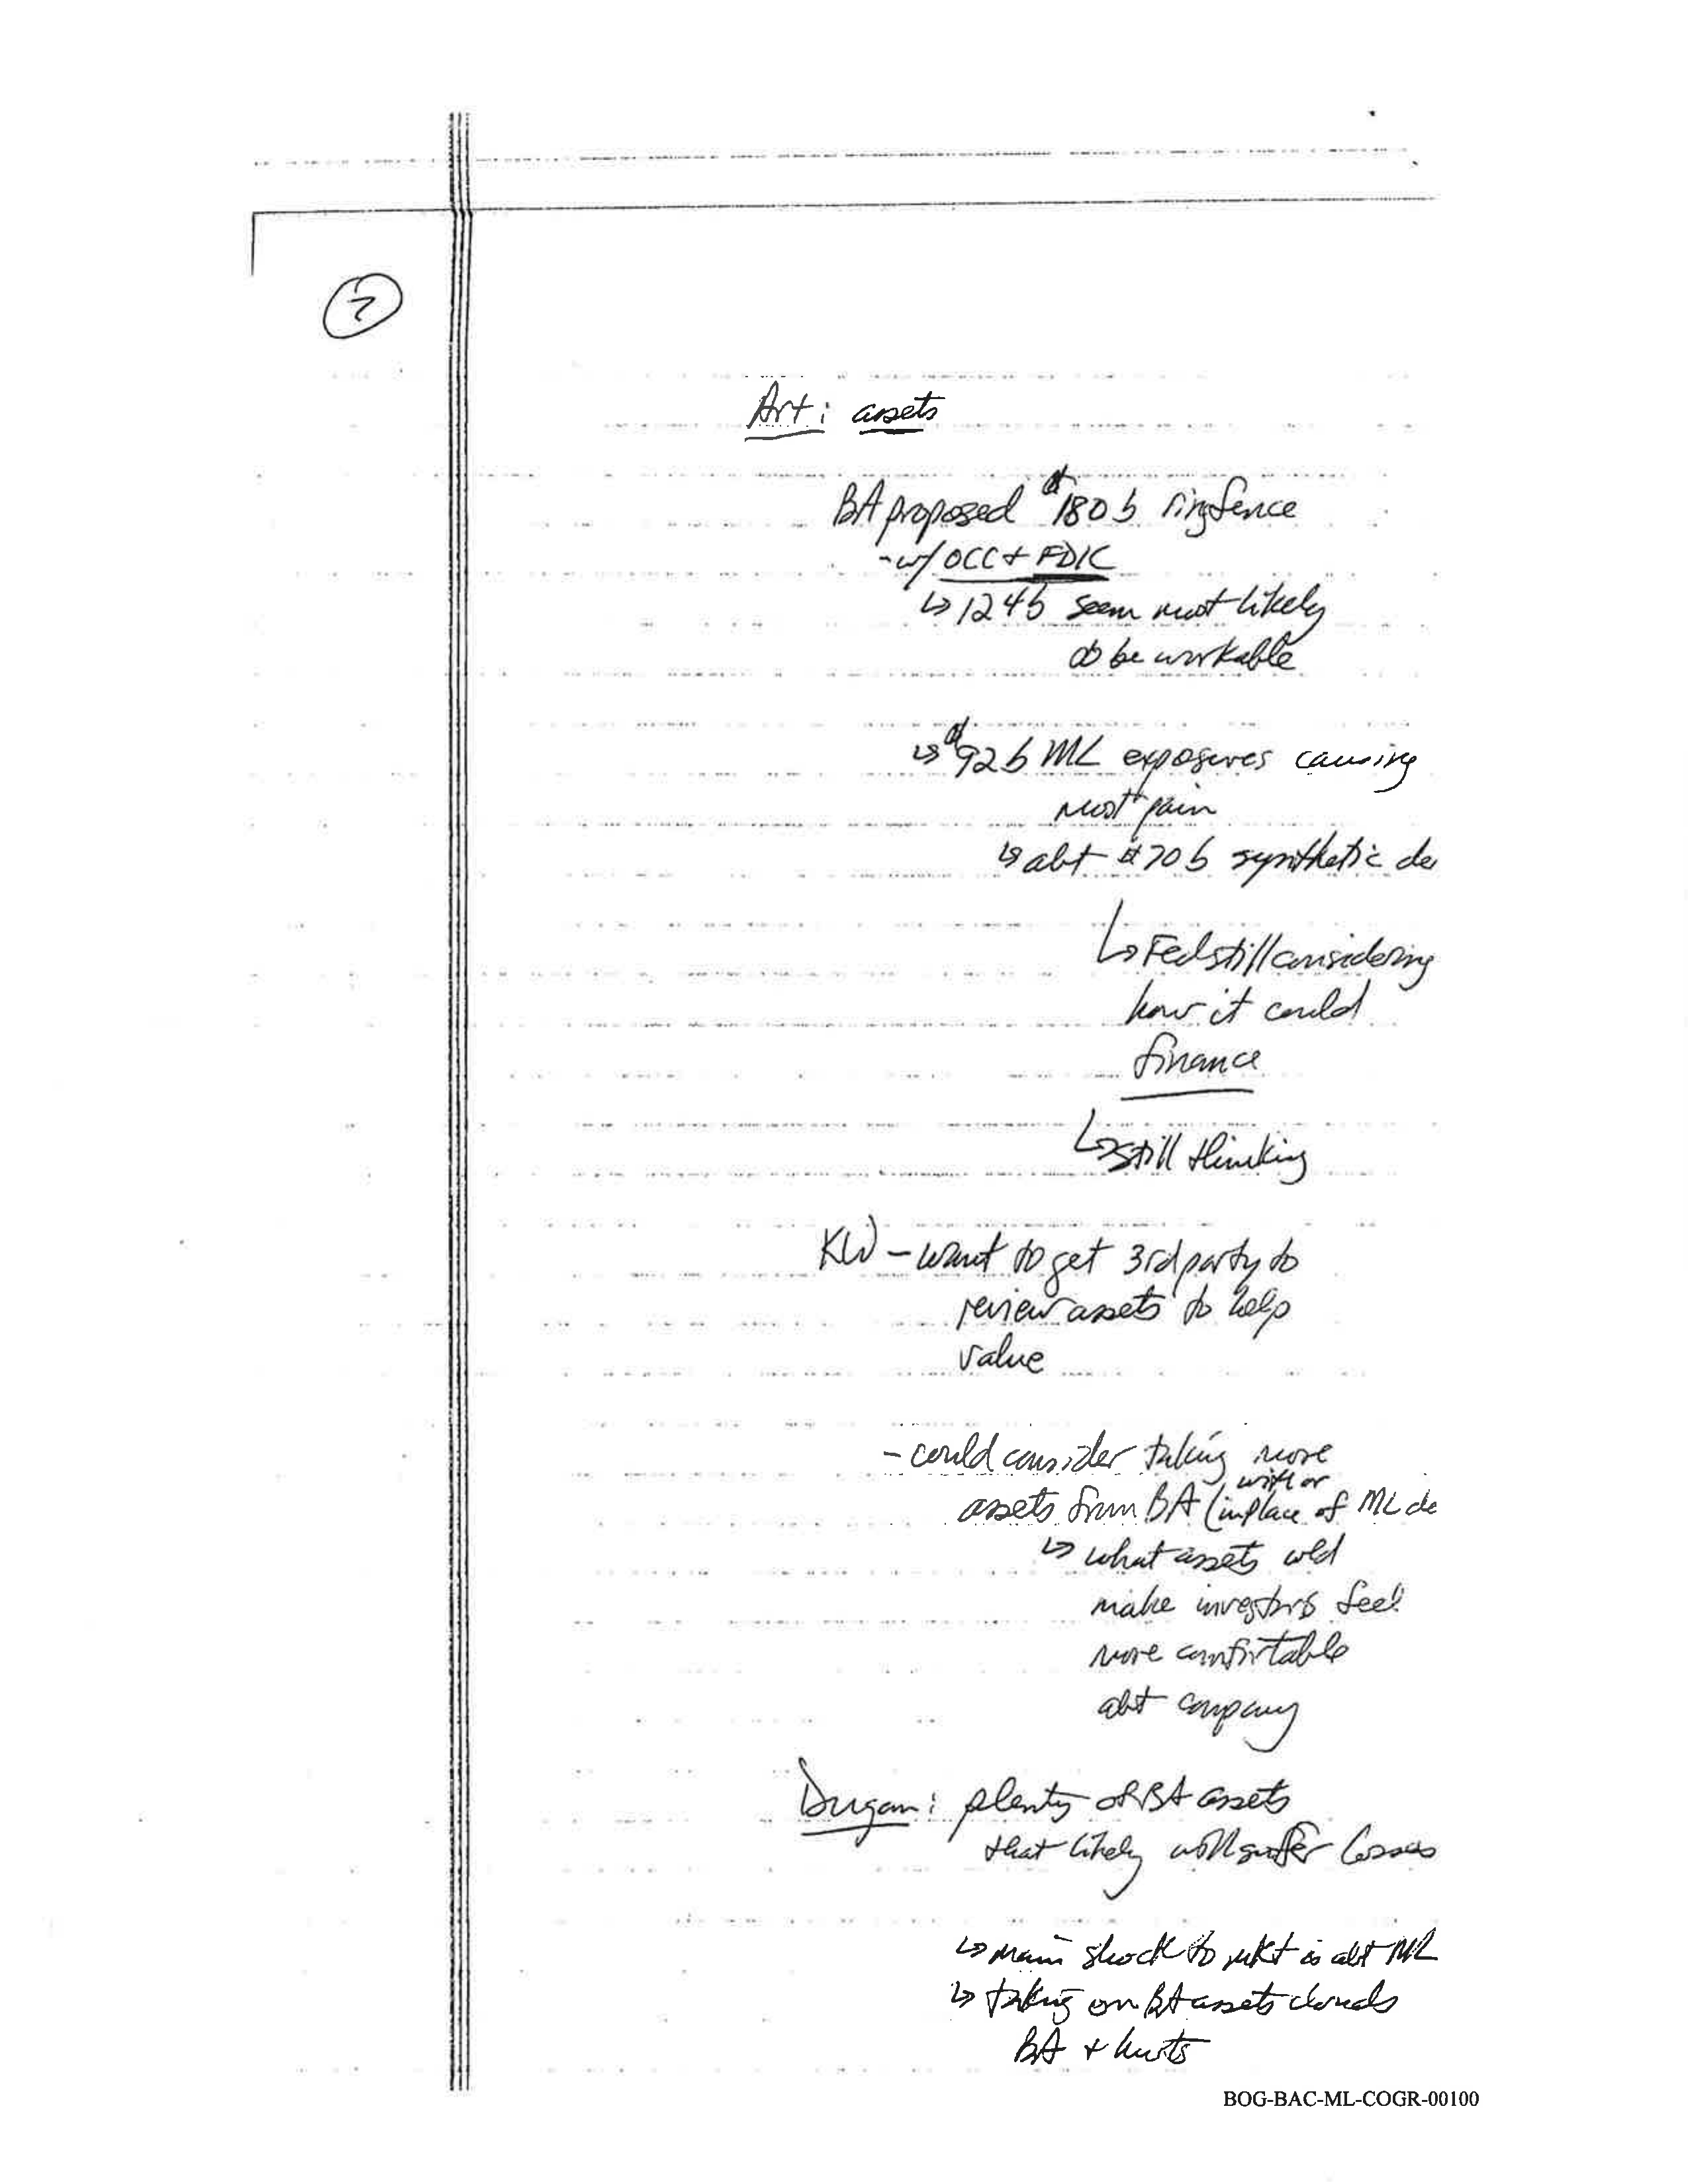 ?
Art: assets
BA proposed $180b ringfence
- w/ OCC + FDIC
↳ 124b seem most likely
to be workable
↳ $92b ML exposures causing
most pain
↳ abt $70b synthetic de
↳ Fed still considering
how it could
finance
↳ still thinking
KW - want to get 3rd party to
review assets to help
value
- could consider taking more
with or
assets from BA (in place of ML de
↳ what assets wld
make investors feel
more comfortable
abt company
Dugan: plenty of BA assets
that likely will suffer losses
↳ main shock to mkt is abt ML
↳ taking on BA assets clouds
BA + hurts
BOG-BAC-ML-COGR-00100